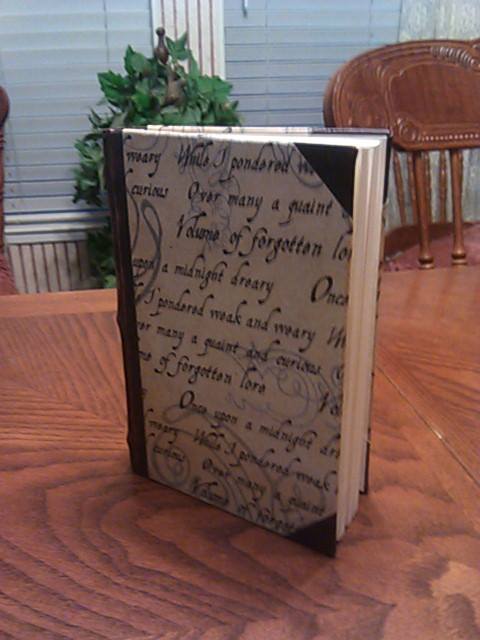 weary While I pondered w
curious Over many a quaint
Volume of forgotten lor
upon a midnight dreary Once
I pondered weak and weary W
er many a quaint and curious
me of forgotten lore Vo
Once upon a midnight dr
weary While I pondered weak
curious Over many a quaint
Volume of forgot